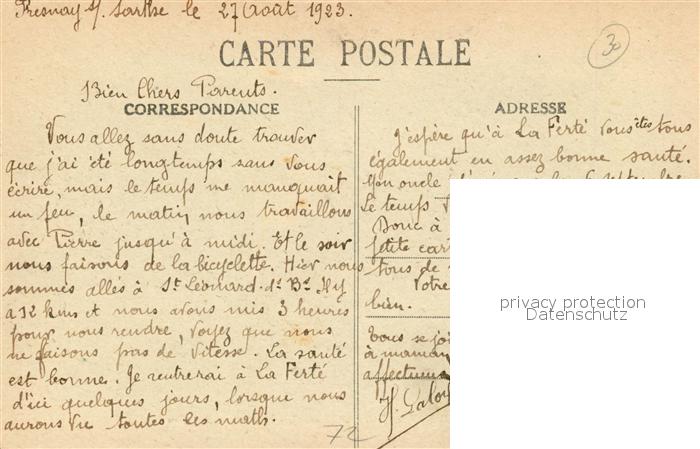 Fresnay s/ Sarthe le 27 Août 1923.
30
CARTE POSTALE
Bien Chers Parents.
CORRESPONDANCE
Vous allez sans doute trouver
que j'ai été longtemps sans vous
écrire, mais le temps me manquait
un peu, le matin, nous travaillons
avec Pierre jusqu'à midi. Et le soir
nous faisons de la bicyclette. Hier nous
sommes allés à St Léonard-ds Bs
à 12 kms et nous avons mis 3 heures
pour nous rendre, voyez que nous
ne faisons pas de vitesse. La santé
est bonne. Je rentrerai à La Ferté
d'ici quelques jours, lorsque nous
aurons vu toutes les maths.
72
ADRESSE
J'espère qu'à La Ferté vous êtes tous
également en assez bonne santé.
Mon oncle
Le temps
Donc à
petite car
tous de
Votre
bien.
Tous se joi
à maman
affectueus
privacy protection
Datenschutz